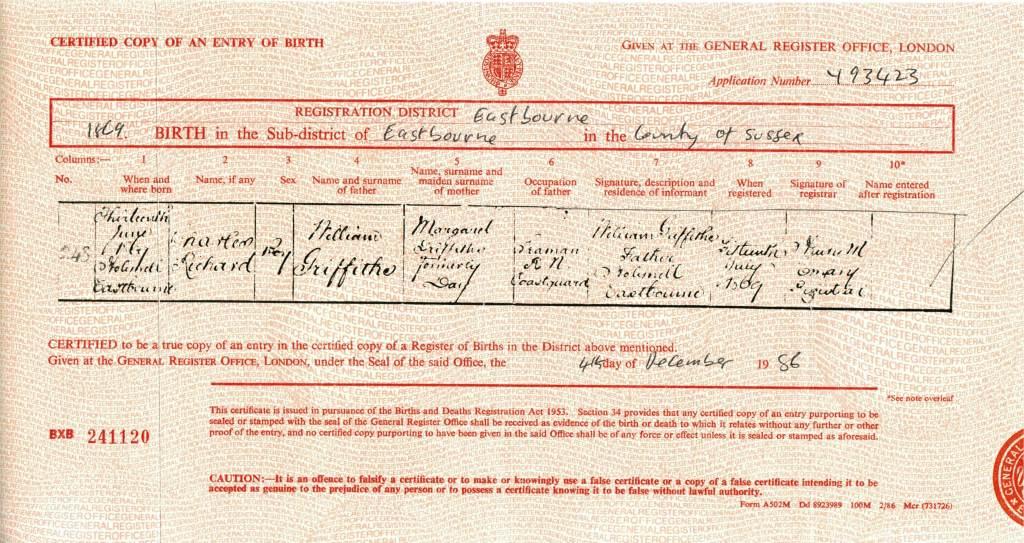 CERTIFIED COPY OF AN ENTRY OF BIRTH
GIVEN AT THE GENERAL REGISTER OFFICE, LONDON
Application Number Y93423
REGISTRATION DISTRICT Eastbourne
1869. BIRTH in the Sub-district of Eastbourne in the County of Sussex
Columns:— 1 2 3 4 5 6 7 8 9 10*
No. When and where born Name, if any Sex Name and surname of father Name, surname and maiden surname of mother Occupation of father Signature, description and residence of informant When registered Signature of registrar Name entered after registration
Thirteenth William Margaret William Griffiths
June Charles Griffiths Seaman Father Fifteenth
1869 Richard Boy Griffiths Formerly R N July
Day Coastguard 1869 Registrar
Eastbourne Eastbourne
CERTIFIED to be a true copy of an entry in the certified copy of a Register of Births in the District above mentioned.
Given at the GENERAL REGISTER OFFICE, LONDON, under the Seal of the said Office, the 4th day of December 1986
*See note overleaf
This certificate is issued in pursuance of the Births and Deaths Registration Act 1953. Section 34 provides that any certified copy of an entry purporting to be
sealed or stamped with the seal of the General Register Office shall be received as evidence of the birth or death to which it relates without any further or other
proof of the entry, and no certified copy purporting to have been given in the said Office shall be of any force or effect unless it is sealed or stamped as aforesaid.
BXB 241120
CAUTION:—It is an offence to falsify a certificate or to make or knowingly use a false certificate or a copy of a false certificate intending it to be
accepted as genuine to the prejudice of any person or to possess a certificate knowing it to be false without lawful authority.
Form A502M Dd 8923989 100M 2/86 Mcr (731726)